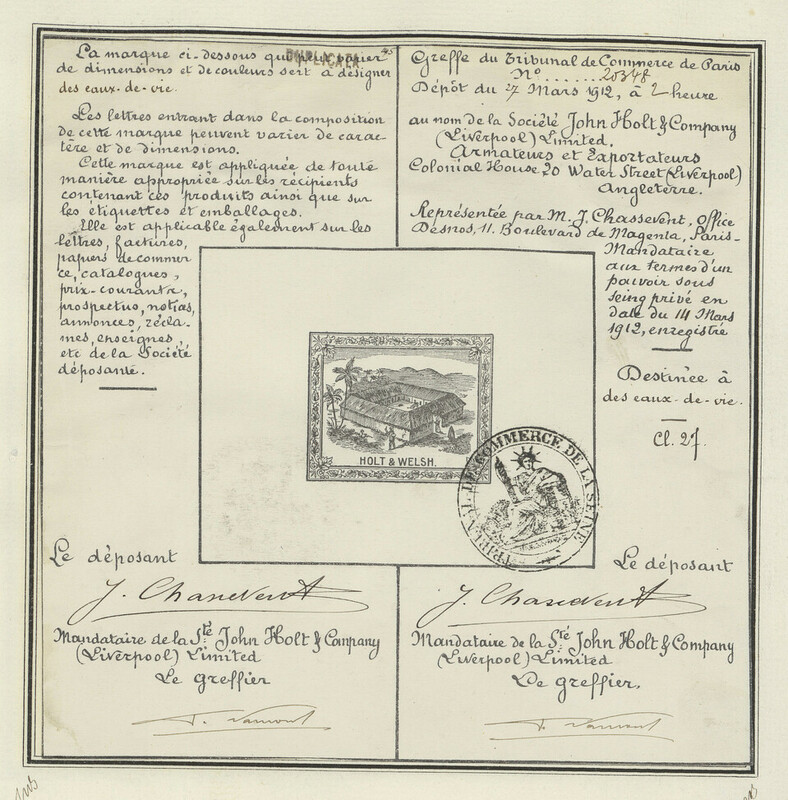 La marque ci-dessous qui peut varier
de dimensions et de couleurs sert à désigner
des eaux-de-vie.
Les lettres entrant dans la composition
de cette marque peuvent varier de carac-
tère et de dimensions.
Cette marque est appliquée de toute
manière appropriée sur les récipients
contenant ces produits ainsi que sur
les étiquettes et emballages.
Elle est applicable également sur les
lettres, factures,
papiers de commer
ce, catalogues,
prix-courants,
prospectus, notias,
annonces, récla-
mes, enseignes,
etc de la Société
déposante.
DUPLICATA
45
Greffe du Tribunal de Commerce de Paris
N° ...... 20348
Dépôt du 27 Mars 1912, à 2 heure
au nom de la Société John Holt & Company
(Liverpool) Limited.
Armateurs et Exportateurs
Colonial House 20 Water Street (Liverpool)
Angleterre.
Représentée par M. J. Chassevent, Office
Desnos, 11. Boulevard de Magenta, Paris-
Mandataire
aux termes d'un
pouvoir sous
seing privé en
date du 14 Mars
1912, enregistré
Destinée à
des eaux-de-vie.
Cl. 27.
HOLT & WELSH.
TRIBUNAL DE COMMERCE DE LA SEINE
Le déposant
J. Chassevent
Mandataire de la Sté John Holt & Company
(Liverpool) Limited
Le greffier
Le déposant
J. Chassevent
Mandataire de la Sté John Holt & Company
(Liverpool) Limited
Le greffier.